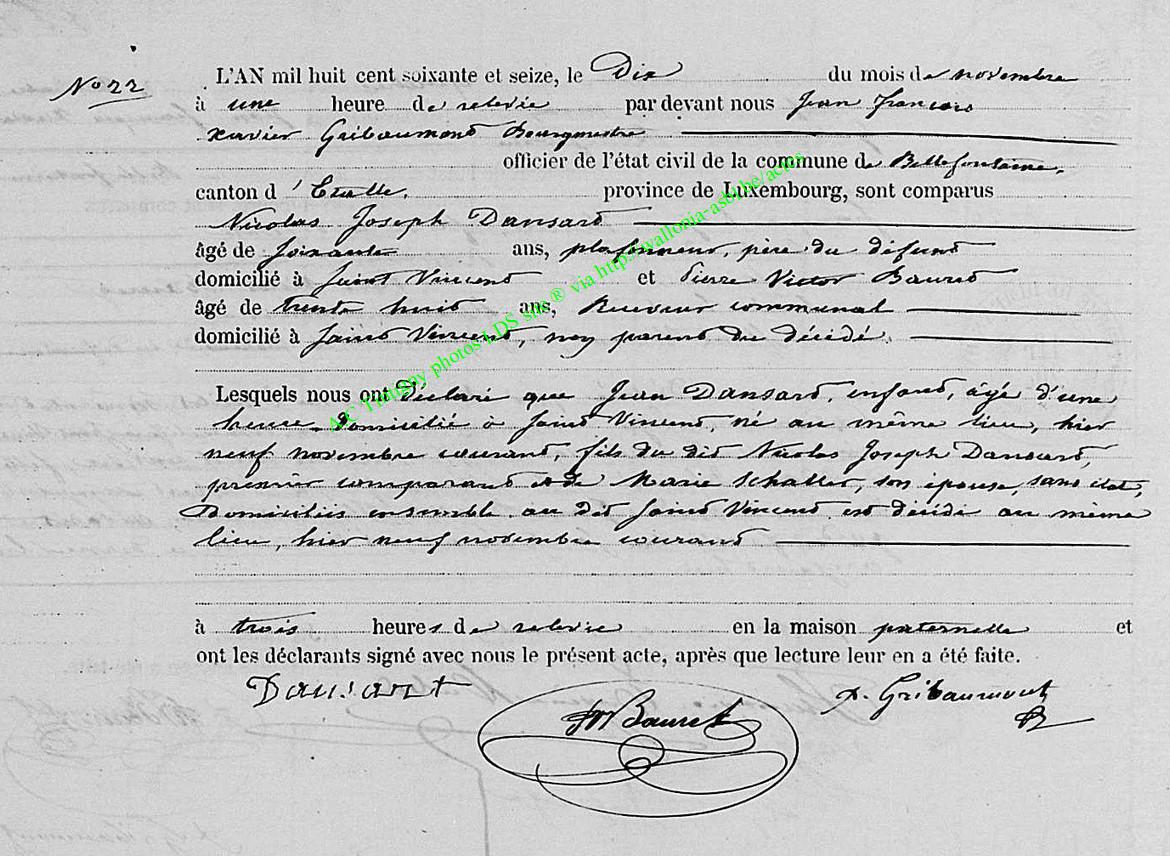 No 22
L'AN mil huit cent soixante et seize, le Dix du mois de novembre
à une heure de relevée par devant nous Jean François
xavier Gribaumont Bourgmestre
officier de l'état civil de la commune de Bellefontaine,
canton d'Etalle, province de Luxembourg, sont comparus
Nicolas Joseph Dansard
âgé de soixante ans, plafonneur, père du défunt
domicilié à Saint Vincent et Pierre Victor Bauret
âgé de trente huit ans, Receveur communal
domicilié à Saint Vincent, non parent du décédé.
Lesquels nous ont Déclaré que Jean Dansart, enfant, âgé d'une
heure domicilié à Saint Vincent, né au même lieu, hier
neuf novembre courant, fils du dit Nicolas Joseph Dansart,
premier comparant et de Marie Schaller, son épouse, sans état,
Domiciliés ensemble au dit Saint Vincent est décédé au même
lieu, hier neuf novembre courant
à trois heures de relevée en la maison paternelle et
ont les déclarants signé avec nous le présent acte, après que lecture leur en a été faite.
Dansart Bauret x. Gribaumont
AC Tintigny photos LDS site ® via http://wallonia-asbl.be/actes